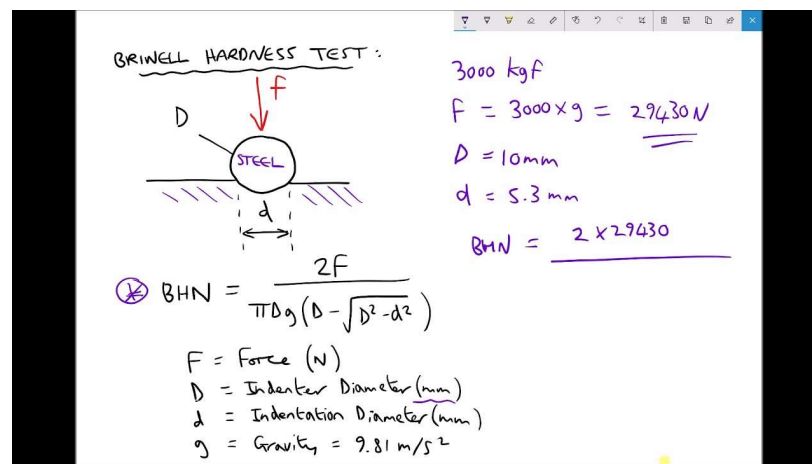 BRINELL HARDNESS TEST:
F
D
STEEL
d
BHN = 2F / πDg(D - √D² - d²)
F = Force (N)
D = Indenter Diameter (mm)
d = Indentation Diameter (mm)
g = Gravity = 9.81 m/s²
3000 kgf
F = 3000 × g = 29430 N
D = 10mm
d = 5.3 mm
BHN = 2 × 29430